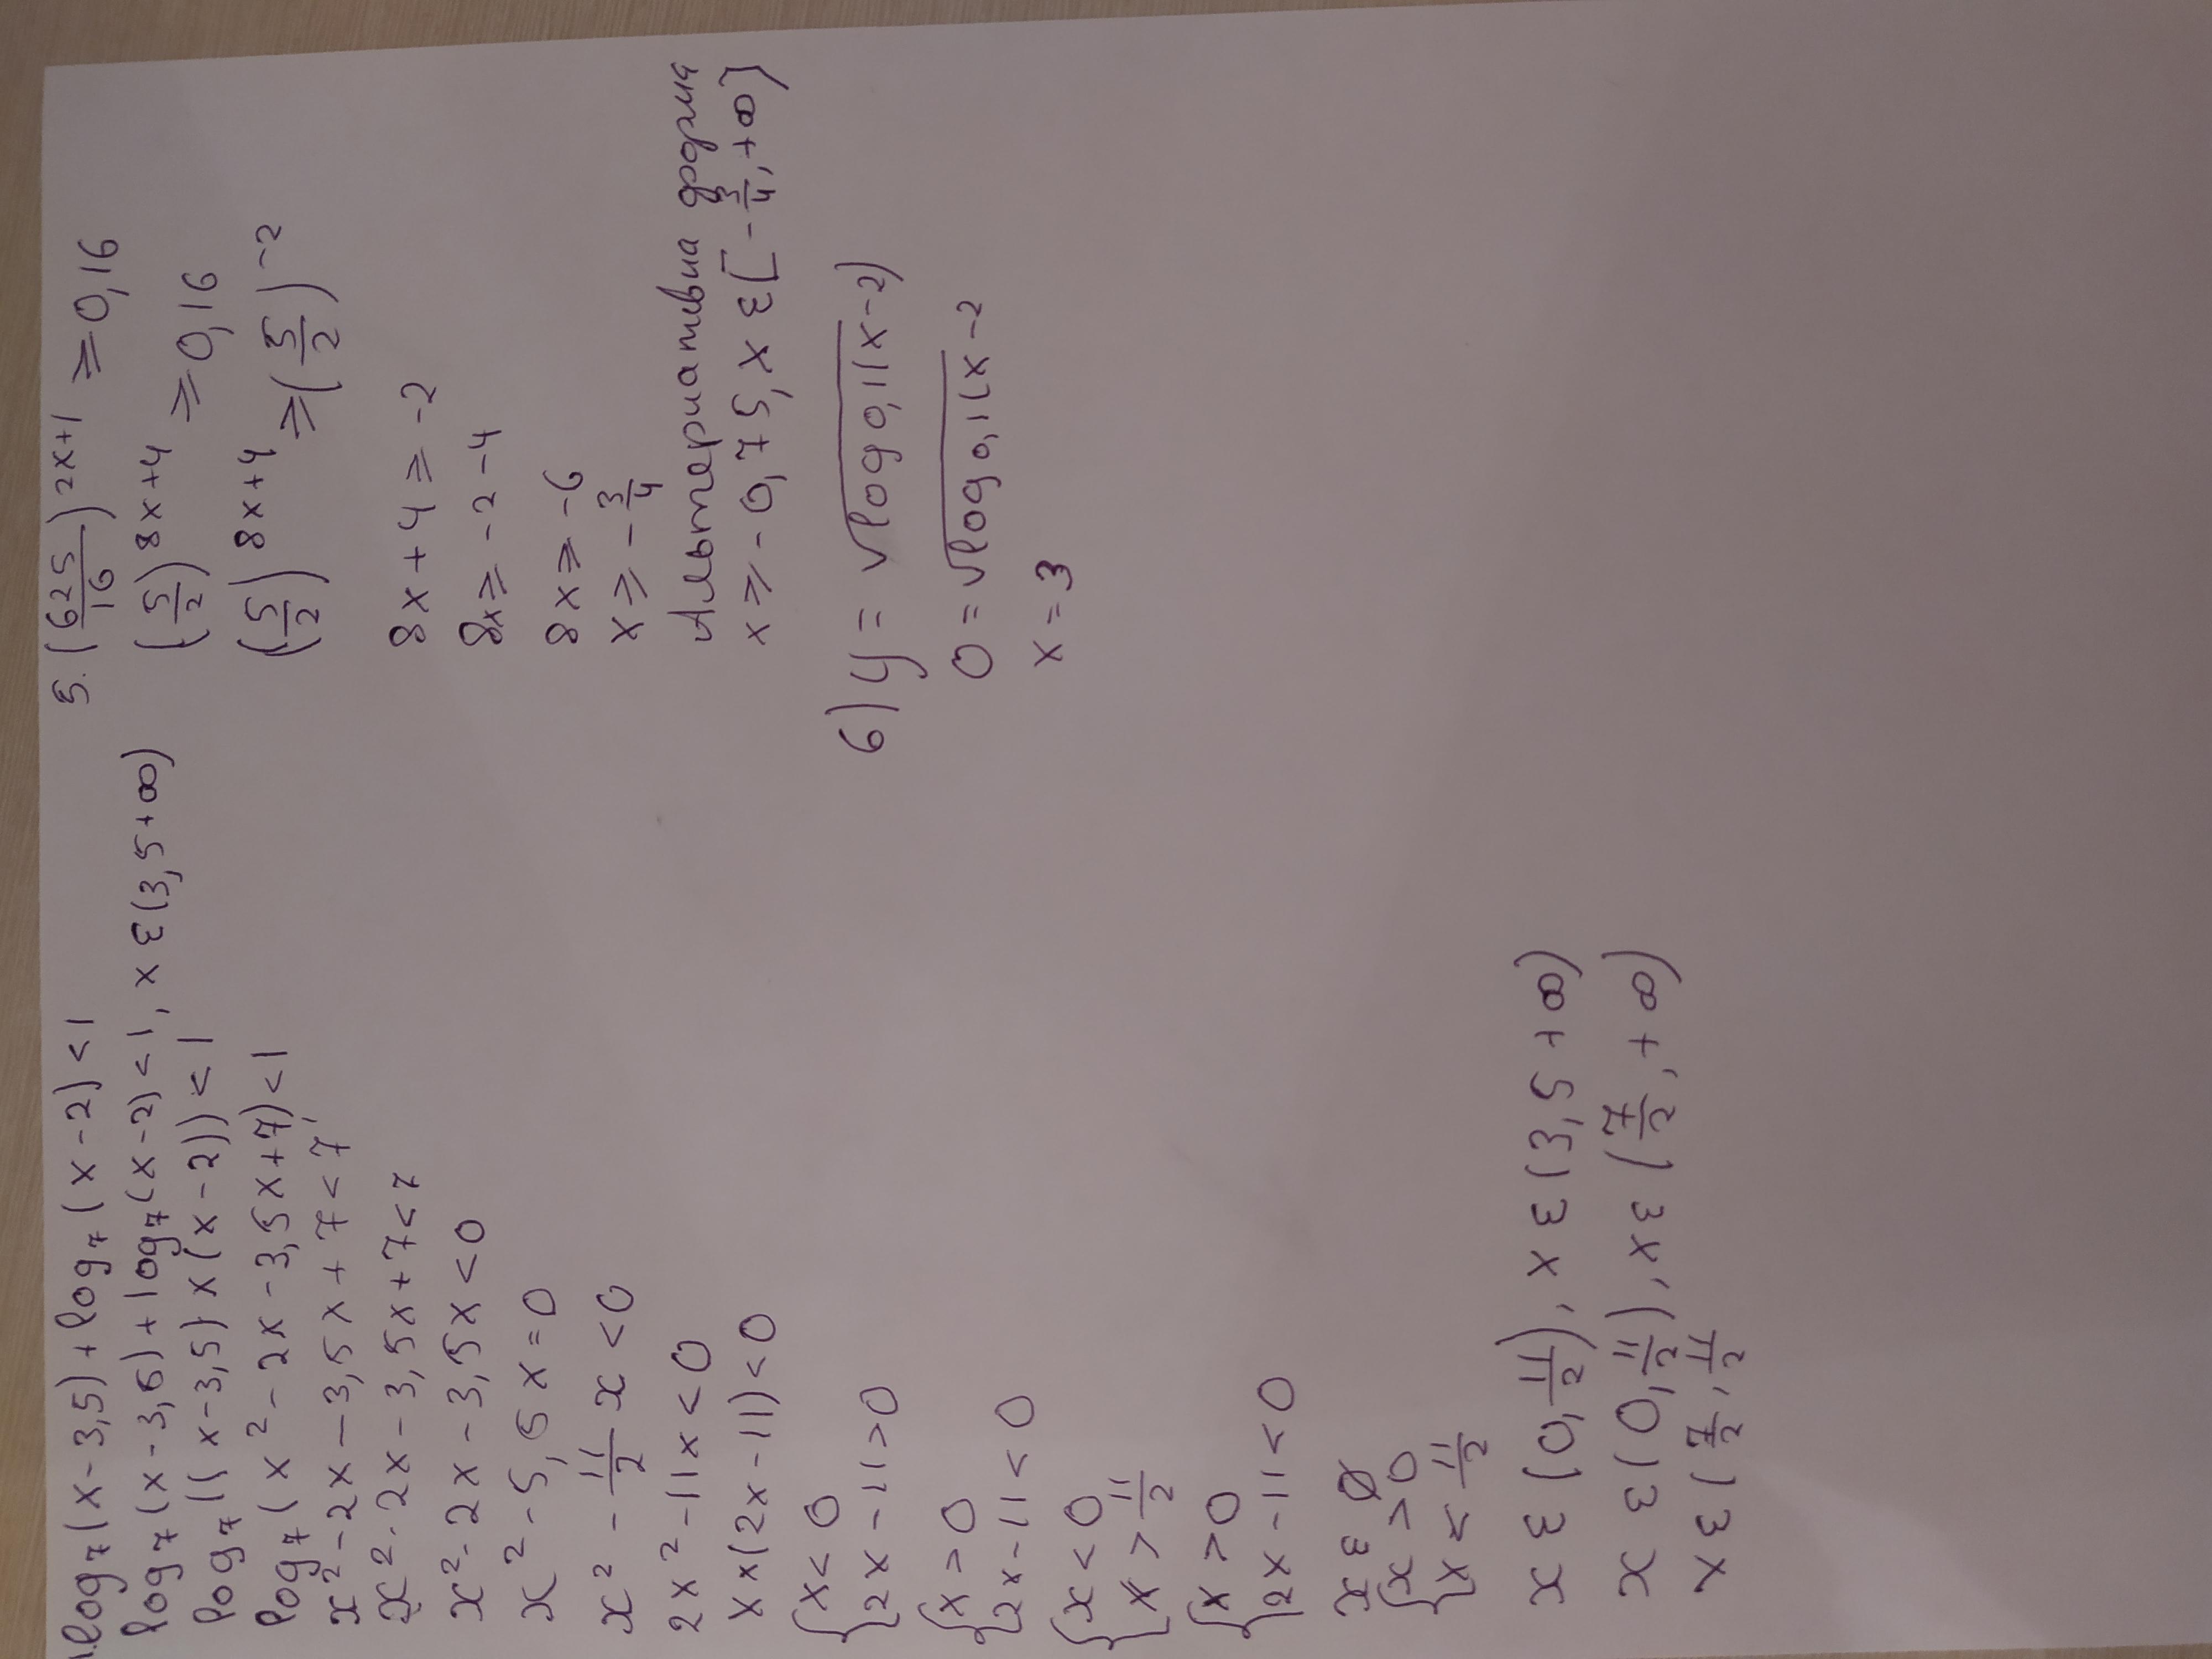 1. log₇(x-3,5)+log₇(x-2)<1
log₇(x-3,6)+log₇(x-2)<1, x ε(3,5+∞)
log₇((x-3,5)x(x-2))<1
log₇(x²-2x-3,5x+7)<1
x²-2x-3,5x+7<7'
x²-2x-3,5x+7<7
x²-2x-3,5x<0
x²-5,5x=0
x²-11/2x<0
2x²-11x<0
x x(2x-11)<0
{x<0
2x-11>0
{x>0
2x-11<0
{x<0
x>11/2
{x>0
2x-11<0
x ε Ø
{x>0
x<11/2
x ε (0,11/2), x ε (3,5+∞)
x ε (0,11/2), x ε (7/2,+∞)
x ε (7/2, 11/2
5. (625/16)^2x+1 ≥0,16
(5/2)^8x+4 ≥0,16
(5/2)^8x+4 ≥(5/2)^-2
8x+4≥-2
8x≥-2-4
8x≥-6
x≥-3/4
Альтернативна форма
x≥-0,75, x ε[-3/4,+∞)
6) y=√log0,1(x-2)
0=√log0,1(x-2
x=3